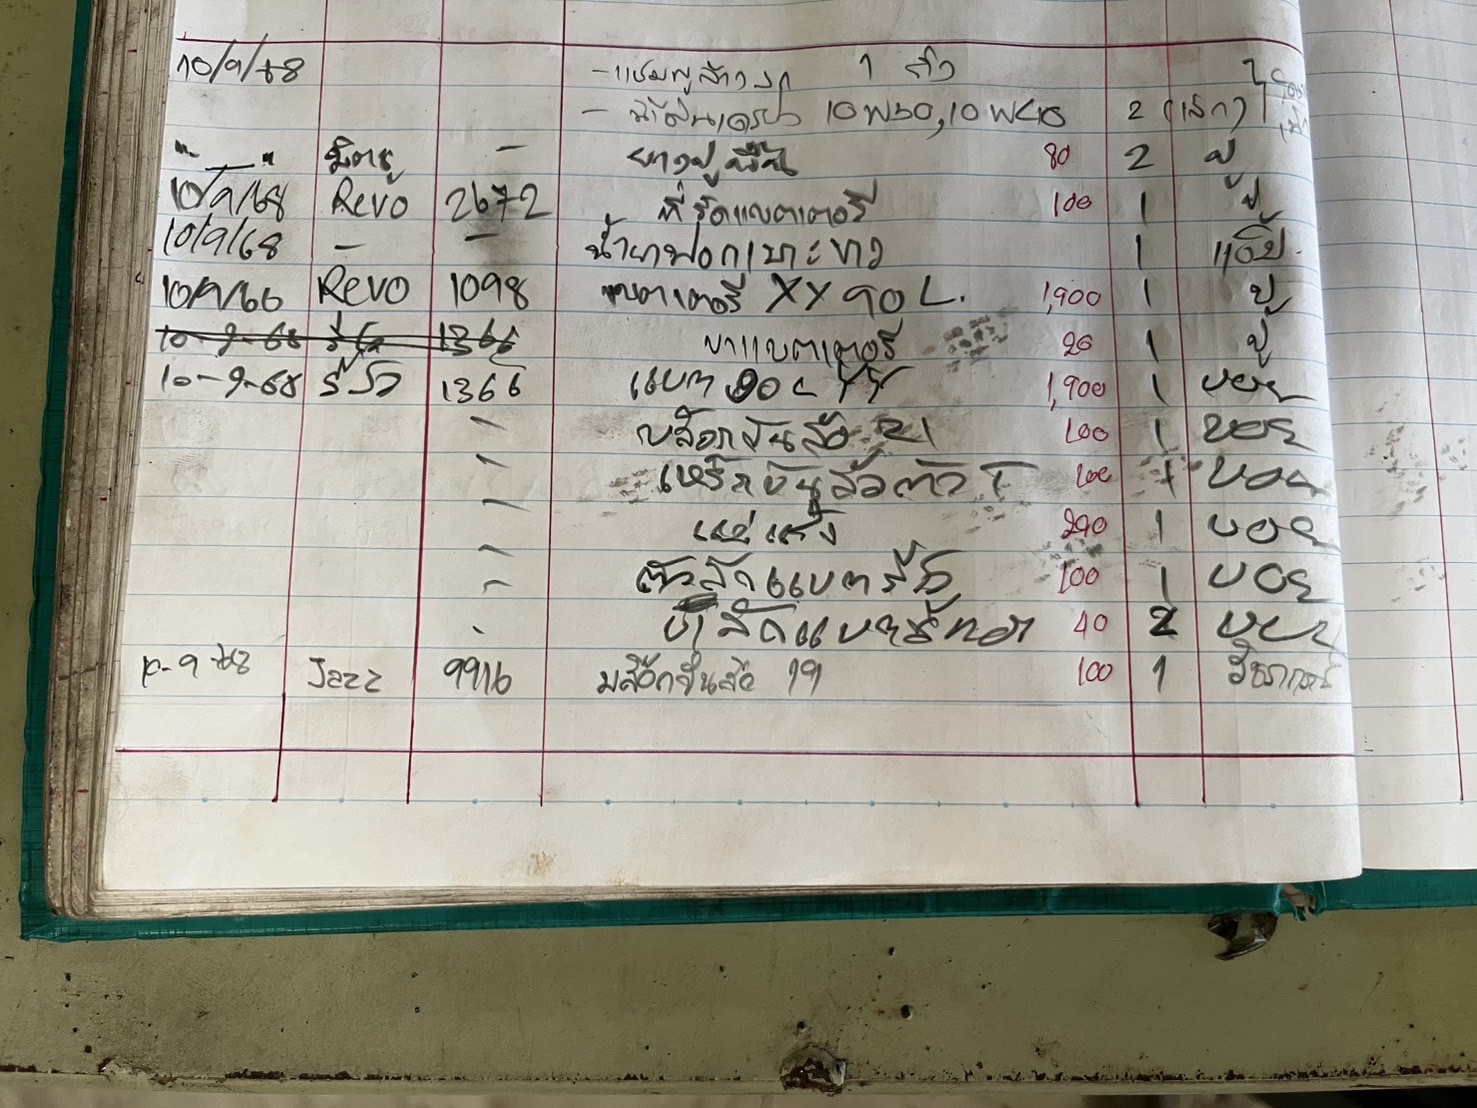 10/9/68 - แชมพูล้างรถ 1 ถัง
- น้ำมันเครื่อง 10W30, 10W40 2 (เล็ก)
" — " มิตซู - ยางปูพื้น 80 2 ปู
10/9/68 Revo 2672 ที่รัดแบตเตอรี่ 100 1 ปู
10/9/68 - - น้ำยาฟอกเบาะ 1
10/9/66 Revo 1098 แบตเตอรี่ XY 90 L. 1,900 1 ปู
10-9-68 รีโว่ 1366 ขาแบตเตอรี่ 20 1 ปู
10-9-68 รีโว่ 1366 แบต 90 L YY 1,900 1 บอย
บล็อกขันล้อ 21 100 1 บอย
เหล็กขันล้อตัว T 100 1 บอย
แม่แรง 290 1 บอย
ตัวรัดแบตรีโว่ 100 1 บอย
40 2
10-9-68 Jazz 9916 บล็อกขันล้อ 19 100 1